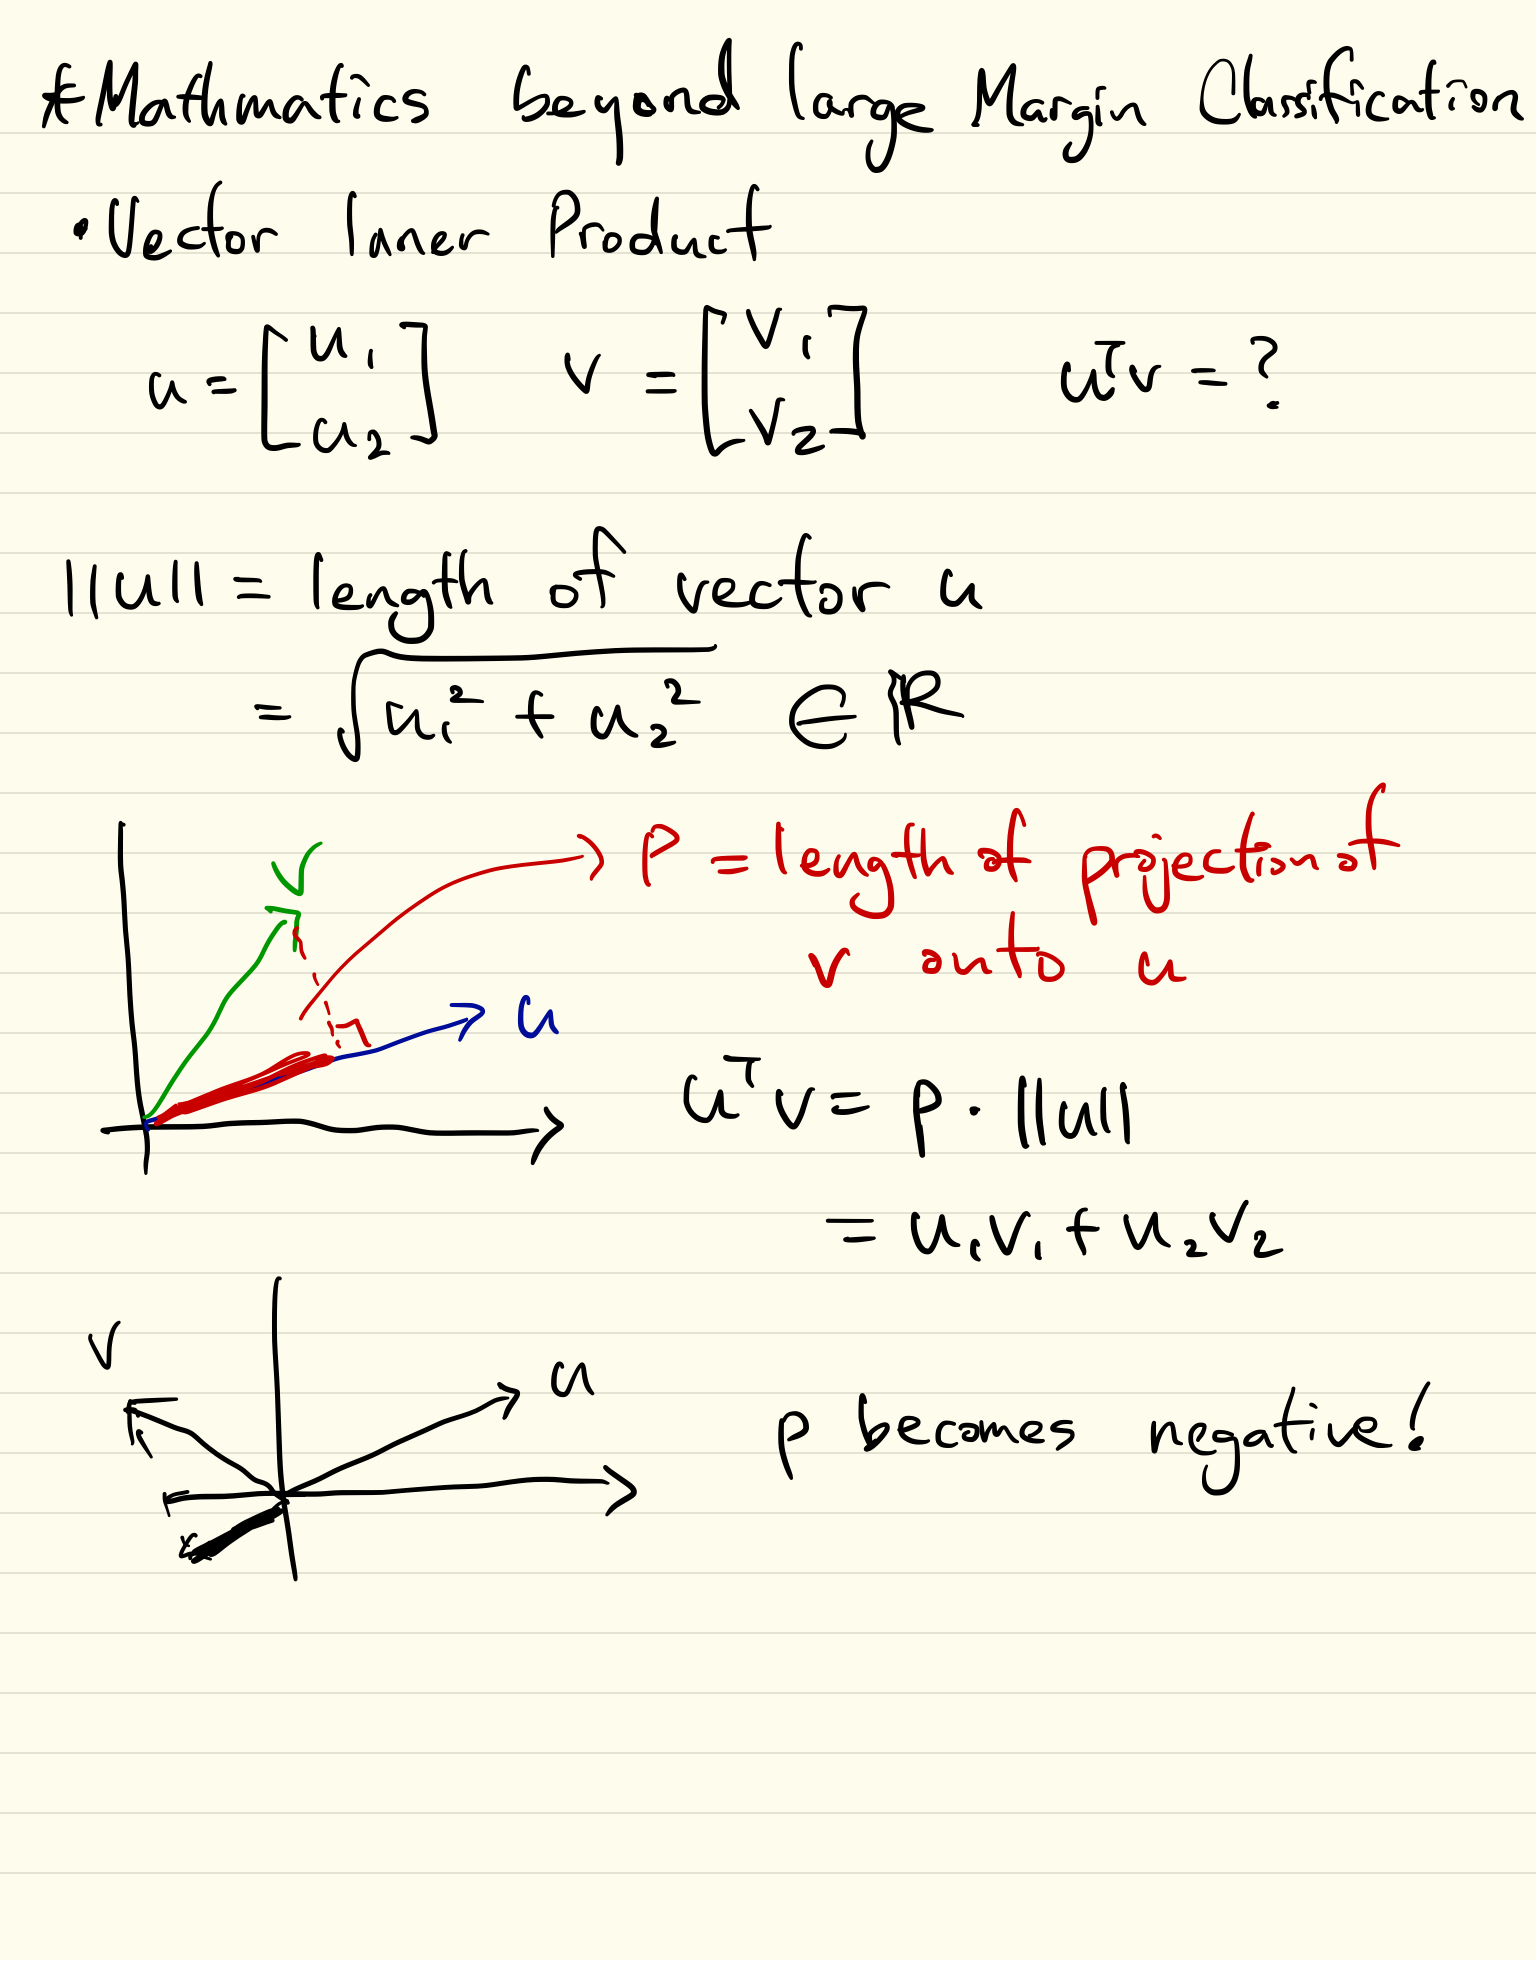 * Mathmatics beyond large Margin Classification
• Vector Inner Product
u = [u₁ u₂] v = [v₁ v₂] uᵀv = ?
||u|| = length of vector u
= √(u₁² + u₂²) ∈ ℝ
v
P = length of projection of
v onto u
u
uᵀv = p · ||u||
= u₁v₁ + u₂v₂
v
u
p becomes negative!